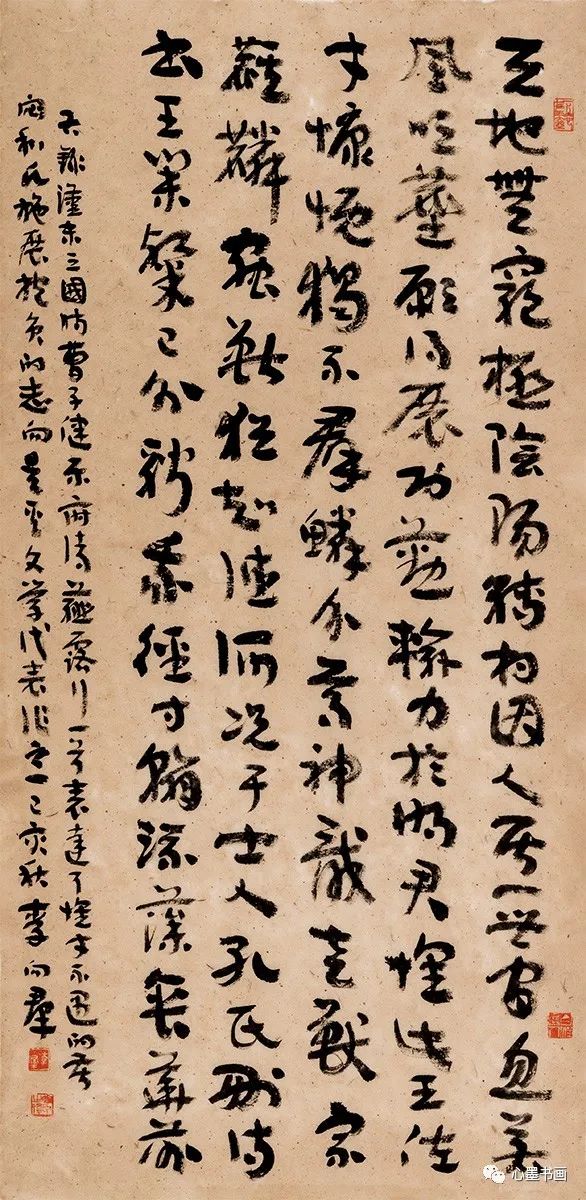 天地無窮極陰陽轉相因人居一世間忽若
風吹塵願得展功勤輸力於明君懷此王佐
才慷慨獨不羣鱗介尊神龍走獸宗
麒麟蟲獸猶知德何況于士人孔氏刪詩
書王業粲已分騁我徑寸翰流藻垂華芬
右錄漢末三國時曹子建樂府詩薤露行一首表達了懷才不遇的苦
和施展抱負的志向是文學代表作之一己亥秋李向羣
心墨书画